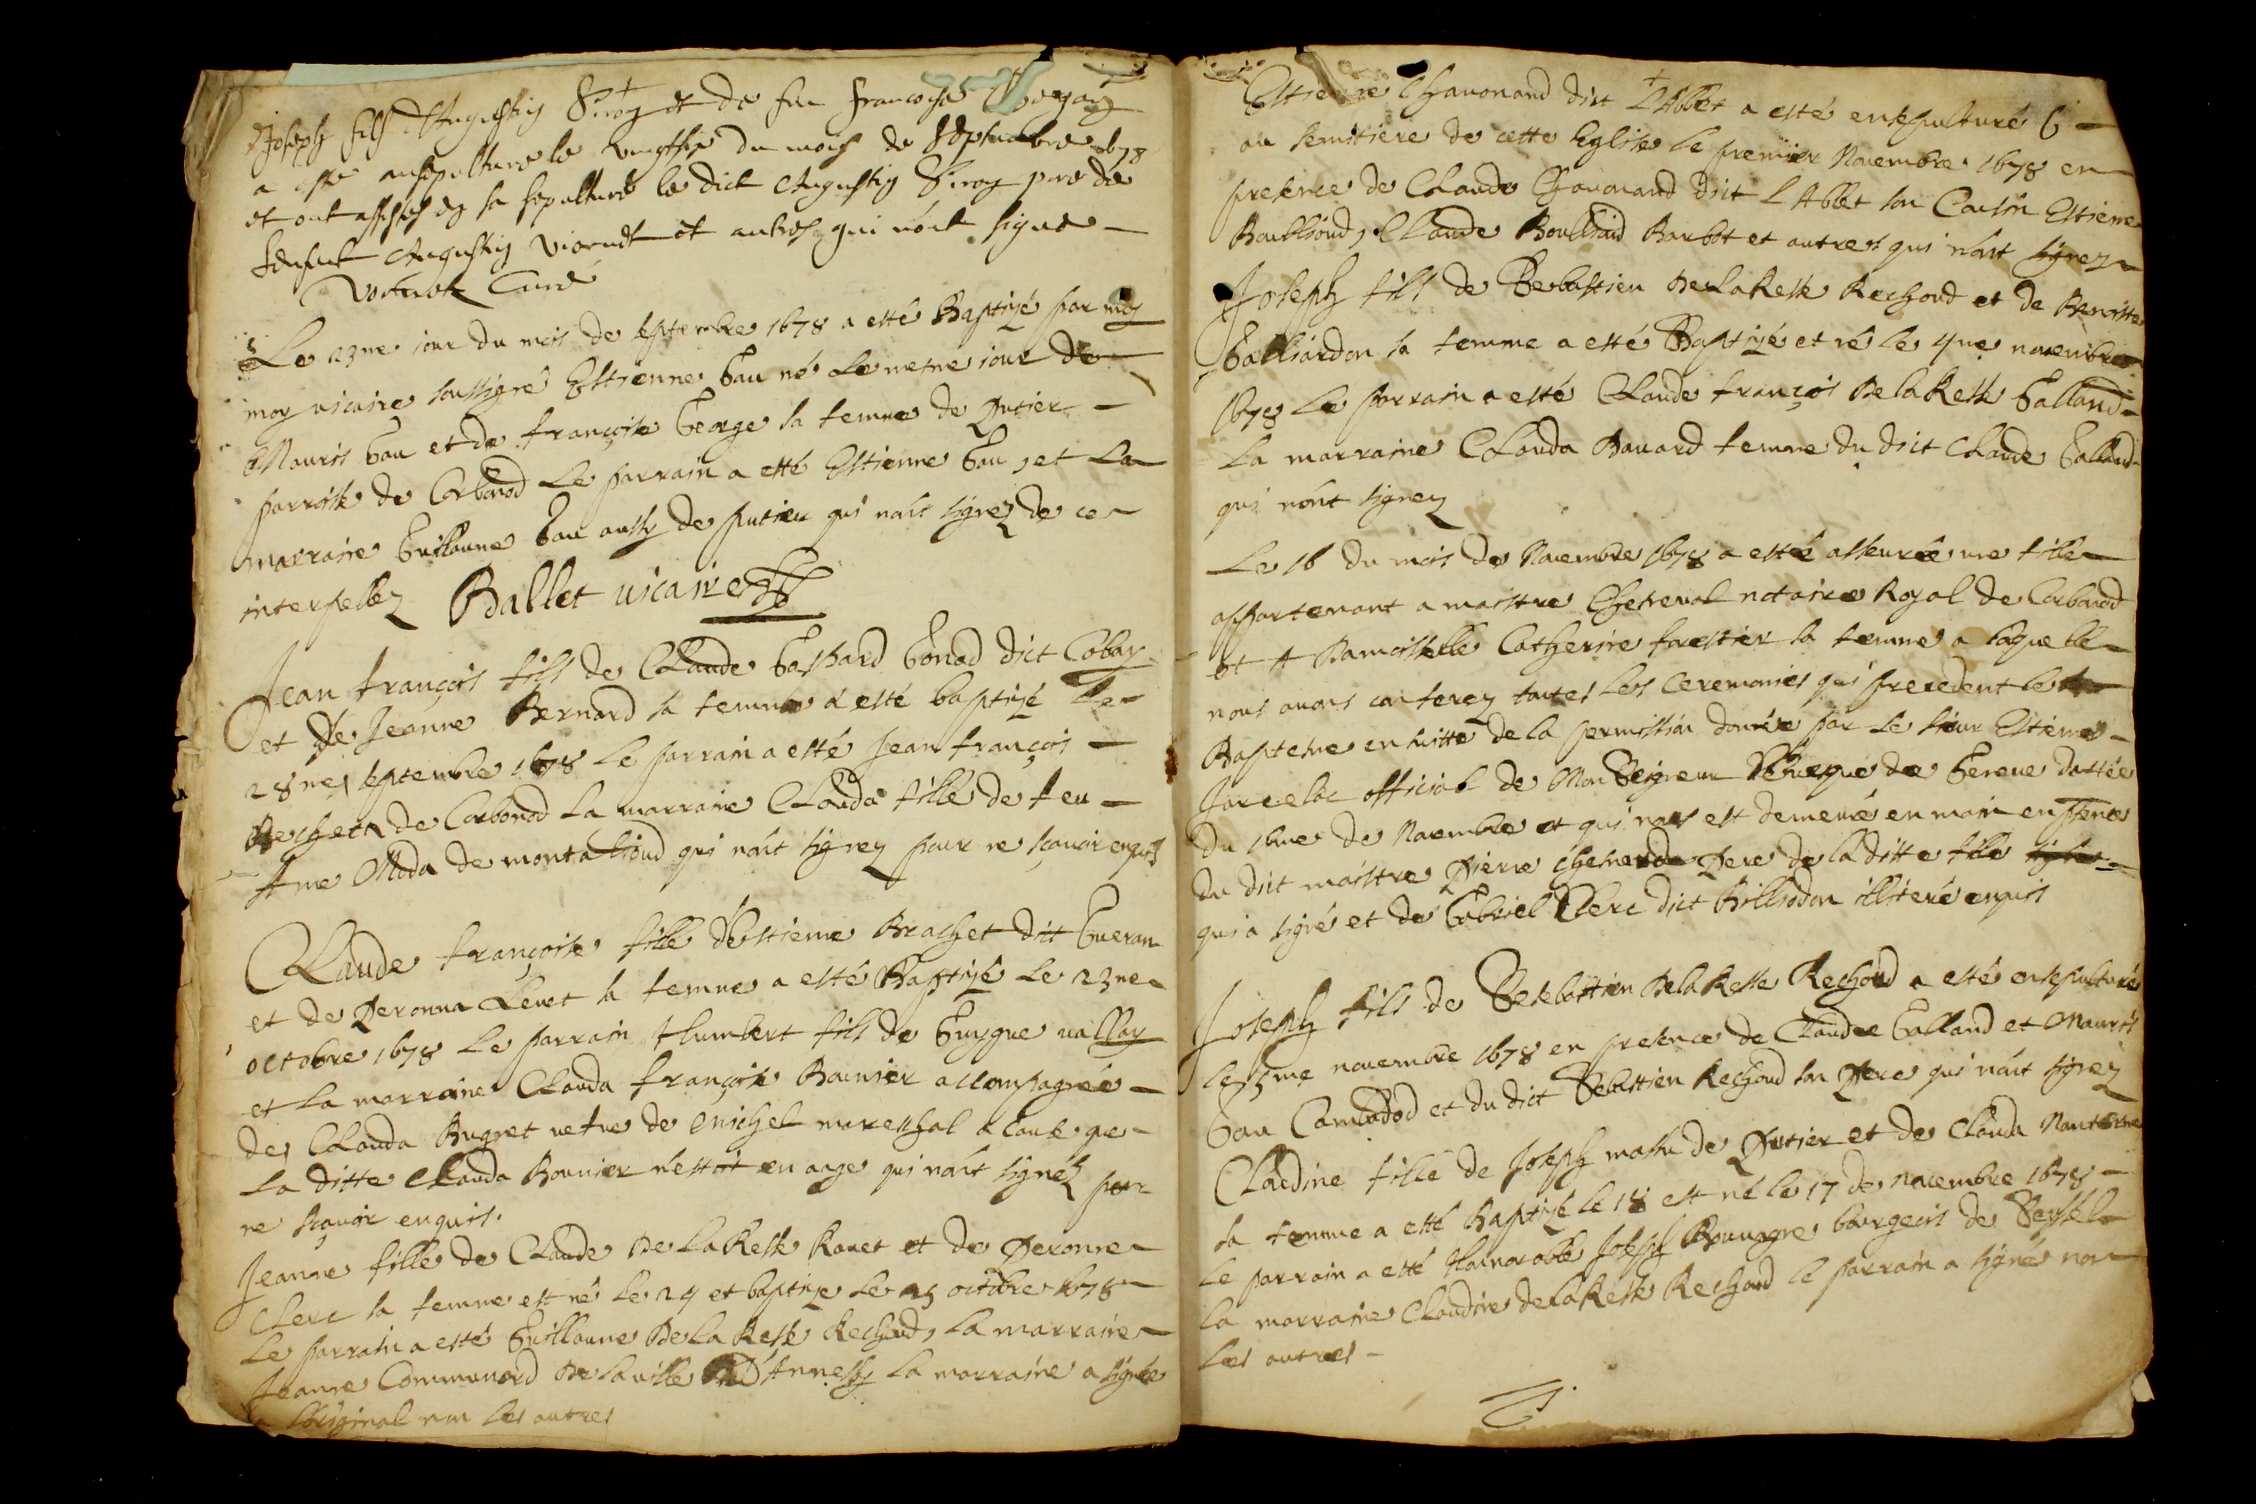 Joseph fils d'Augustin Siroz et de feu francoise
a esté ansepulture le vingtsix du mois de Septembre 1678
et ont assistes en sa sepulture le dict Augustin Siroz pere de
lenfant Augustin et autres qui n'ont signe
Curé
Le 23me iour du mois de septembre 1678 a esté Baptizé par moy
moy vicaire soussigné Estienne Gau né le mesme iour de
Mauris Gau et de françoise George sa femme de Putier
parroisse de Corbonod Le parrain a esté Estienne Gau, et La
marraine Guillaume Gau aussy de putier qui n'ont signez de ce
interpellez Ballet vicaire
Jean françois fils de Claude Gashard Gonod dict Cobay
et De Jeanne Bernard sa femme a esté baptizé le
28me septembre 1678 Le parrain a esté Jean françois
de Corbonod La marraine Clauda fille de feu
Ame de qui n'ont signez pour ne sçavoir enquis
Claude françoise fille d'Estienne Brachet dit
et de Peronna Levet sa femme a esté Baptizé Le 23me
octobre 1678 Le parrain Humbert fils de Guigue vallay
et La marraine Clauda françoise Bounier accompagnée
de Clauda Bugnet vefve de Michel mareschal a cause que
La ditte Clauda Bounier n'estoit en aage qui n'ont signez pour
ne sçavoir enquis.
Jeanne fille de Claude De La Kesse Rauet et de Peronne
Clerc sa femme est né Le 24 et baptize Le 25 octobre 1678
Le parrain a esté Guillaume De La Kesse Rechoud, La marraine
Jeanne Communord De La ville D'Annessy La marraine a signée
L'original non Les autres
Estienne Chauonand dict L'Abbet a esté ensepulturé
au semistiere de cette Eglise Le premier Nouembre 1678 en
presence de Claude Chauonand dict L'Abbet son Cousin Estienne
Boullioud, Claude Boullioud Barbot et autres qui n'ont signez
Joseph fils de Sebastien De La Kesse Rechoud et de Benoiste
Galliardon sa femme a esté Baptizé et né le 4me nouembre
1678 Le parrain a esté Claude françois De La Kesse Galland
La marraine Clauda Bauard femme du dict Claude Galland
qui n'ont signez
Le 16 du mois de Nouembre 1678 a esté asseurée une fille
appartenant a maistre Chesneual notaire Royal de Corbonod
et A Damoiselle Catherine forestier sa femme a laquelle
nous auons conferez toutes Les Ceremonies qui precedent le
Baptesme en suitte de la permission donnée par Le sieur Estienne
official de Mon Seigneur L'Euesque de Geneue dattée
du 16me de Nouembre et qui nous est demeuré en main en presence
du dict maistre Pierre Pere de la ditte fille
qui a signé et de Gabriel Clerc dict Billiodon illiteré enquis
Joseph fils de Sebastien De la Kesse Rechoud a esté ensepulturé
le 5me nouembre 1678 en presence de Claude Galland et Mauris
Gau Cambadod et du dict Sebastien Rechoud son Pere qui n'ont signez
Claudine fille de Joseph de Putier et de Clauda
sa femme a esté Baptizé Le 18 est né le 17 de nouembre 1678
Le parrain a esté Honnorable Joseph bourgeois de Seyssel
La marraine Claudine de la Kesse Rechoud Le parrain a signé non
Les autres